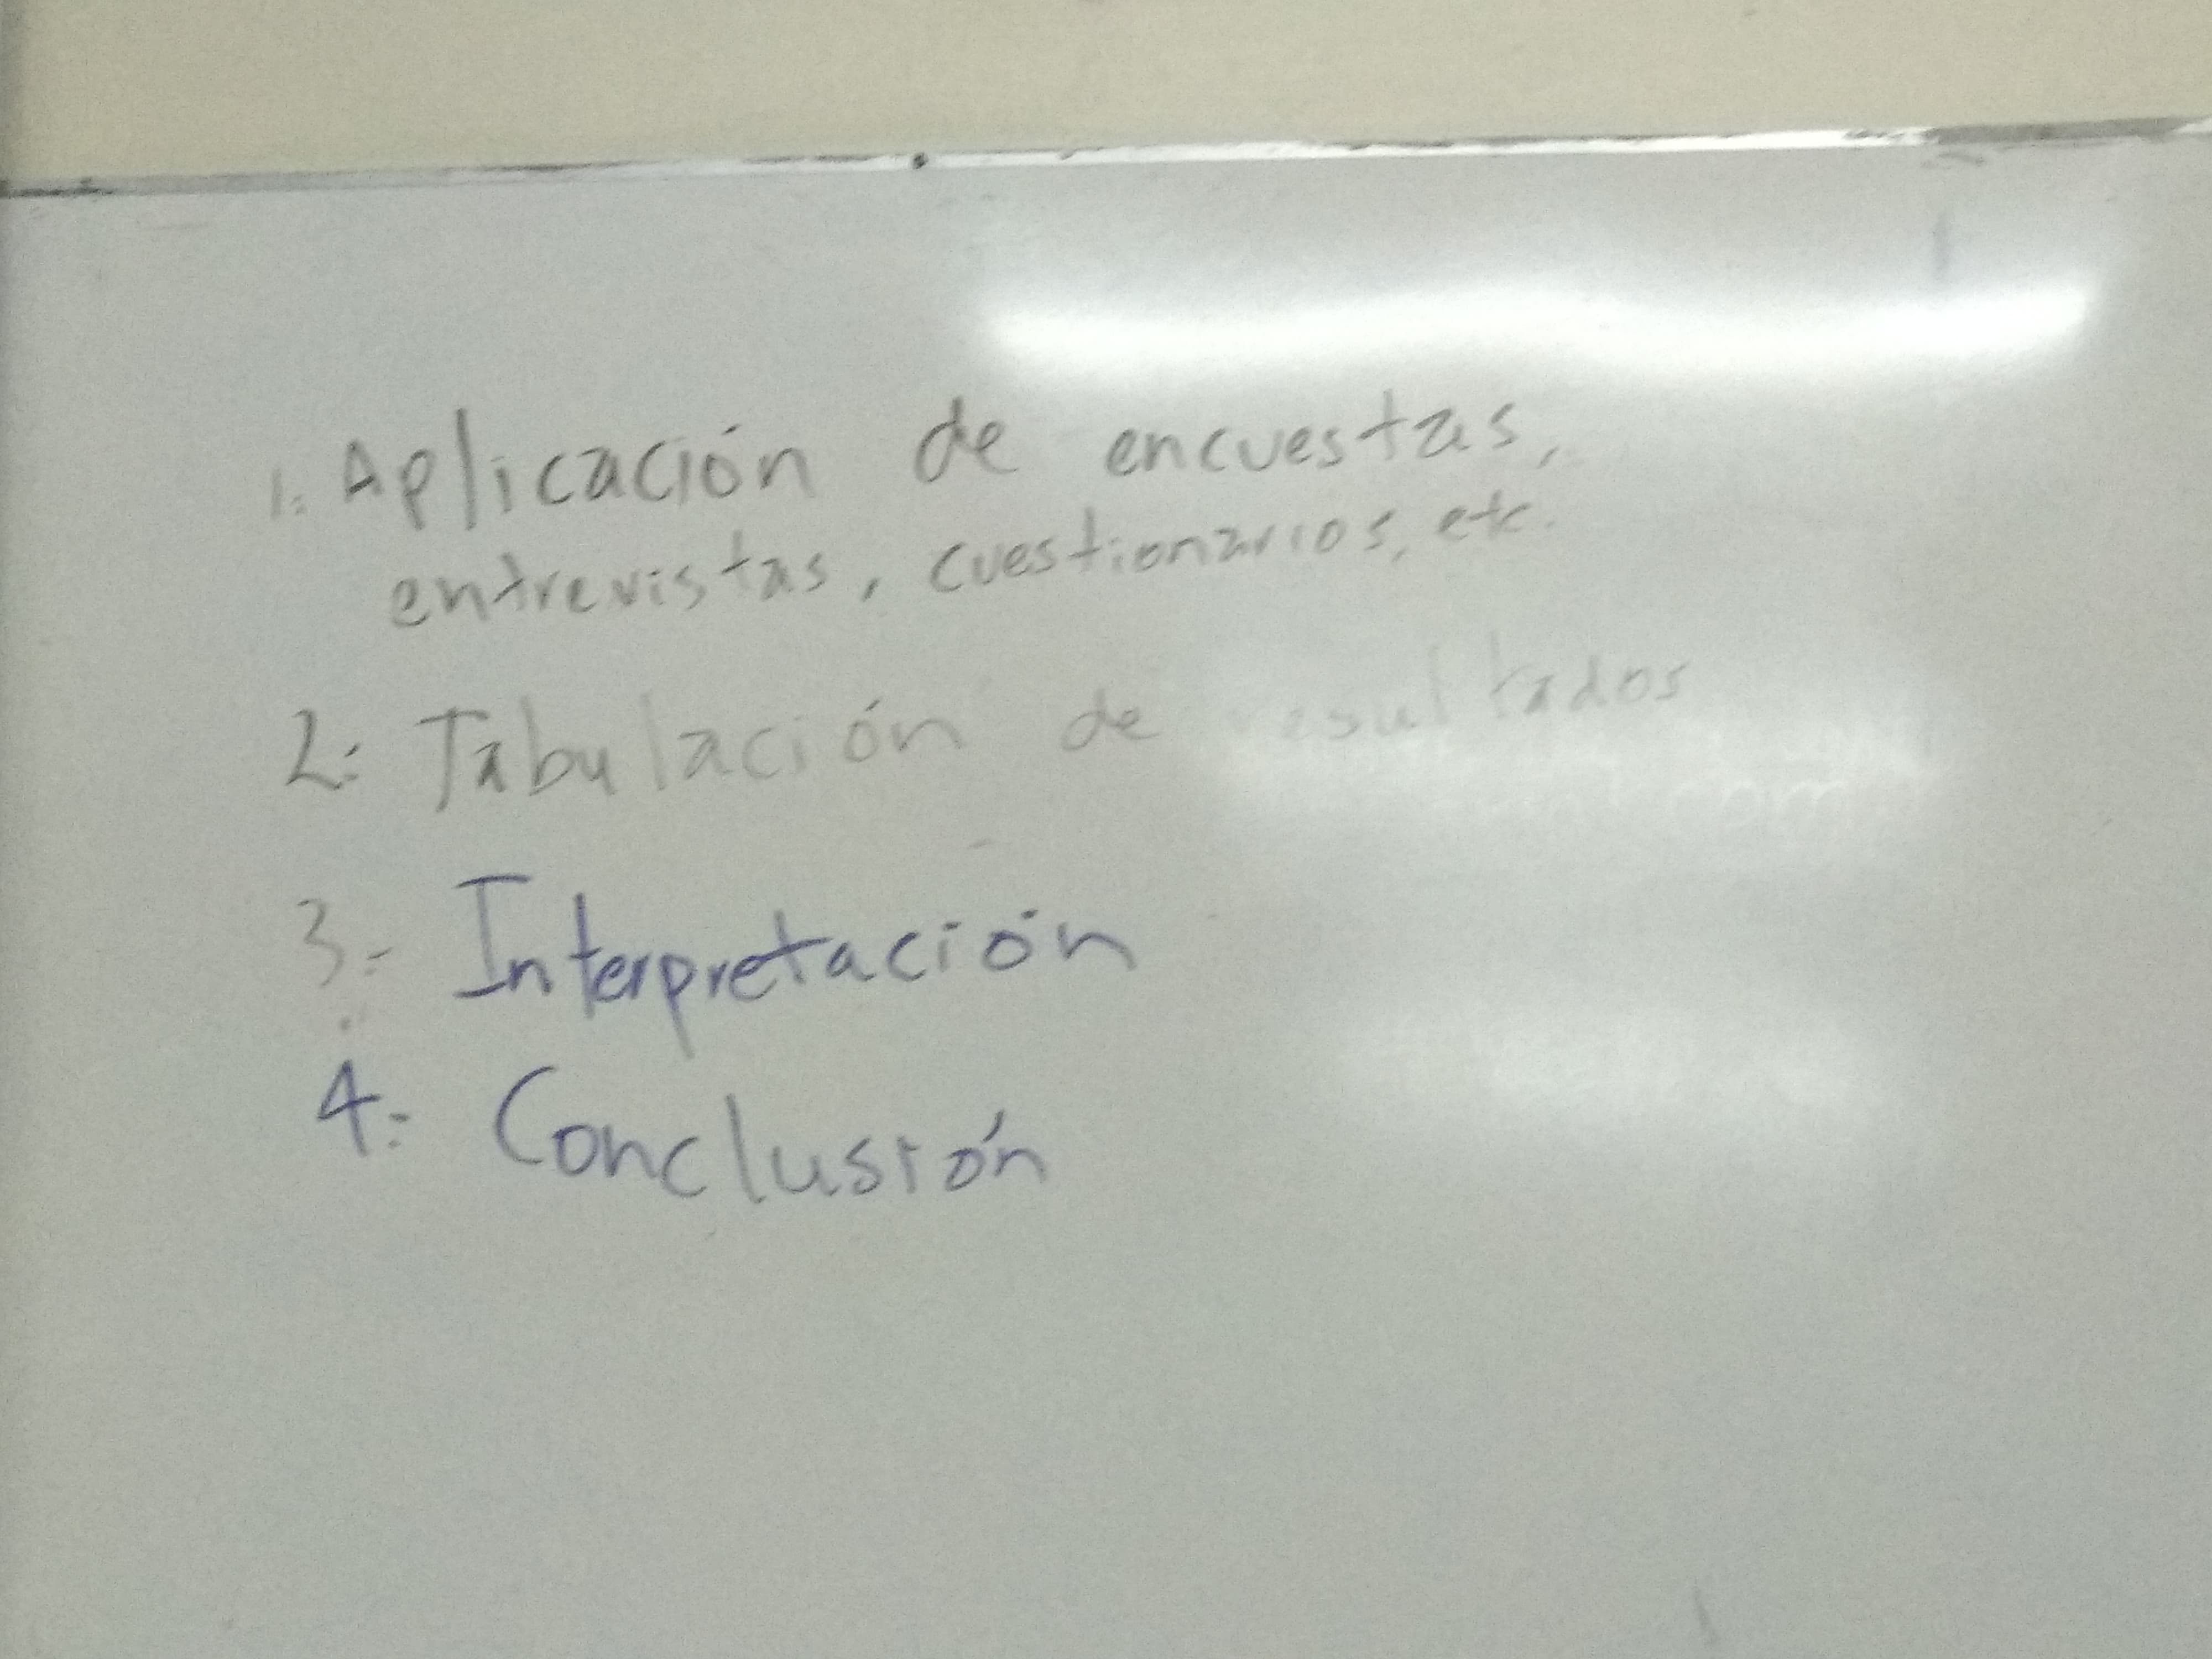 1.- Aplicación de encuestas,
entrevistas, cuestionarios, etc.
2.- Tabulación de resultados
3.- Interpretación
4.- Conclusión